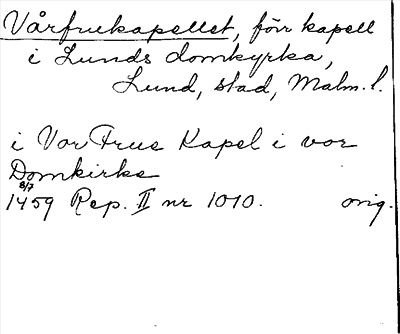 Vårfrukapellet, förr kapell
i Lunds domkyrka,
Lund, stad, Malm. l.
i Vor Frue Kapel i vor
Domkirke
8/7
1459 Rep. II nr 1010. orig.